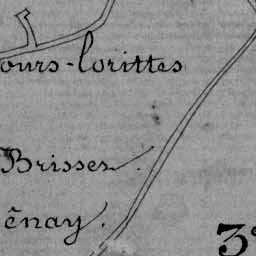 ours-lorittes
Brisses.
énay.
3e